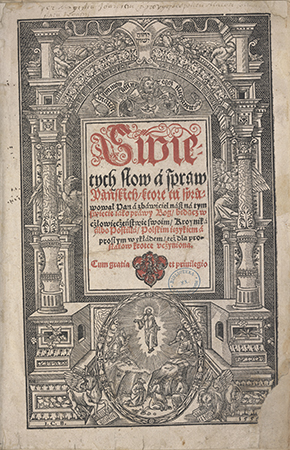 Swię-
tych słow a spraw
Pańskich/ ktore tu spra-
wował Pan a zbáwiciel nász ná tym
świecie iáko prawy Bog/ będąc w
człowieczeństwie swoim/ Kroyniká
álbo Postillá/ Polskim ięzykiem á
prostym wykłádem/ też dla pro-
stakow krotce vczyniona.
Cum gratia et privilegio
I.C.B.